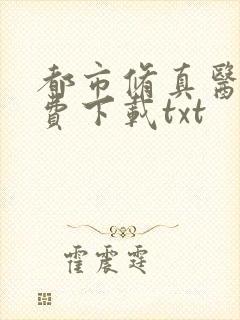 都市脩真醫
費下載txt
霍震霆